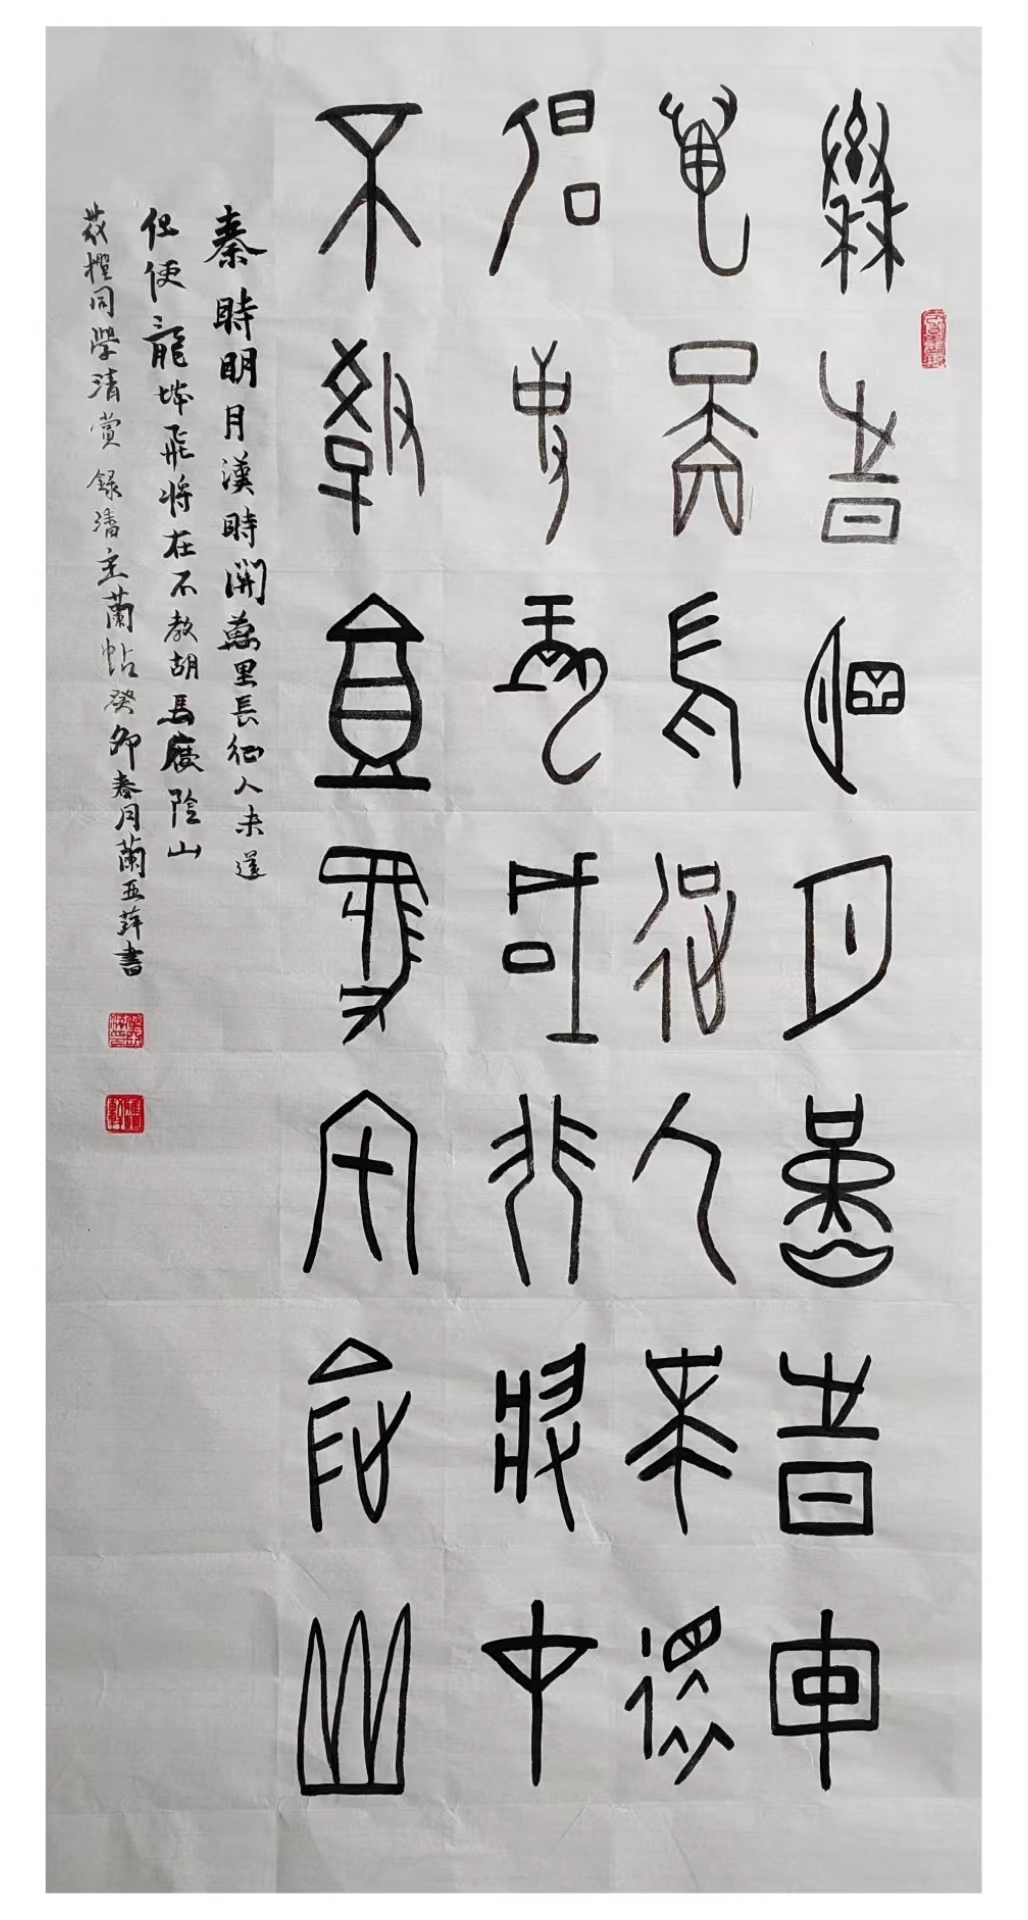 秦時明月漢時關
萬里長征人未還
但使龍城飛將在
不教胡馬度陰山
秦時明月漢時關萬里長征人未還
但使龍城飛將在不教胡馬度陰山
同學清賞 錄潘主蘭帖癸卯春月蘭亞萍書